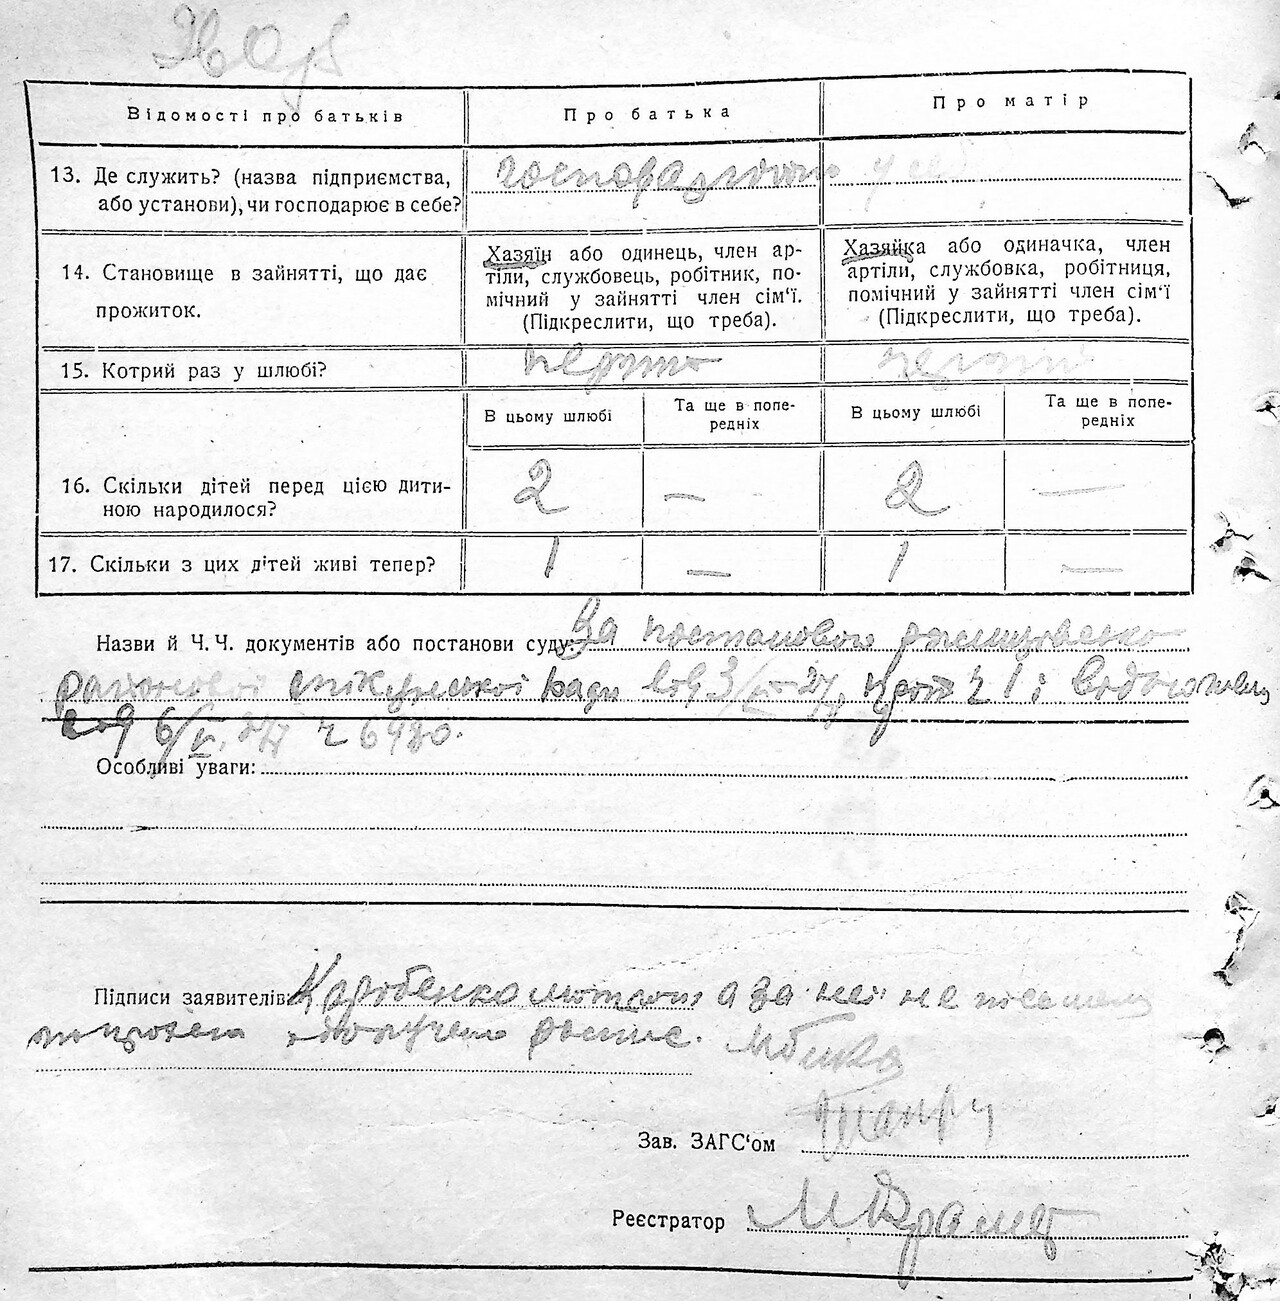 Відомості про батьків
Про батька
Про матір
13. Де служить? (назва підприємства,
або установи), чи господарює в себе?
14. Становище в зайнятті, що дає
прожиток.
Хазяїн або одинець, член ар-
тіли, службовець, робітник, по-
мічний у зайнятті член сім'ї.
(Підкреслити, що треба).
Хазяйка або одиначка, член
артіли, службовка, робітниця,
помічний у зайнятті член сім'ї
(Підкреслити, що треба).
15. Котрий раз у шлюбі?
В цьому шлюбі
Та ще в попе-
редніх
В цьому шлюбі
Та ще в попе-
редніх
16. Скільки дітей перед цією дити-
ною народилося?
2 — 2 —
17. Скільки з цих дітей живі тепер? 1 — 1 —
Назви й Ч. Ч. документів або постанови суду: За постановою
районової опікунської ради від 3/ 27 р. прот ч 1 і
від 6/ 27 ч 6980.
Особливі уваги:
Підписи заявителів: а за неї не
Зав. ЗАГС'ом
Реєстратор